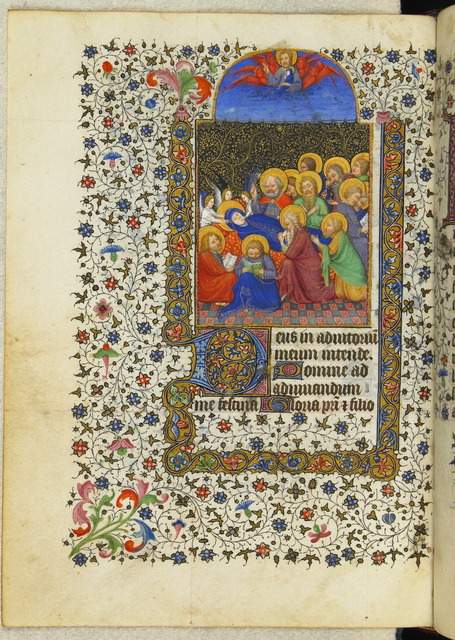 Deus in adiutoriu
meum intende.
Domine ad
adiuuandum
me festina Gloria pri & filio